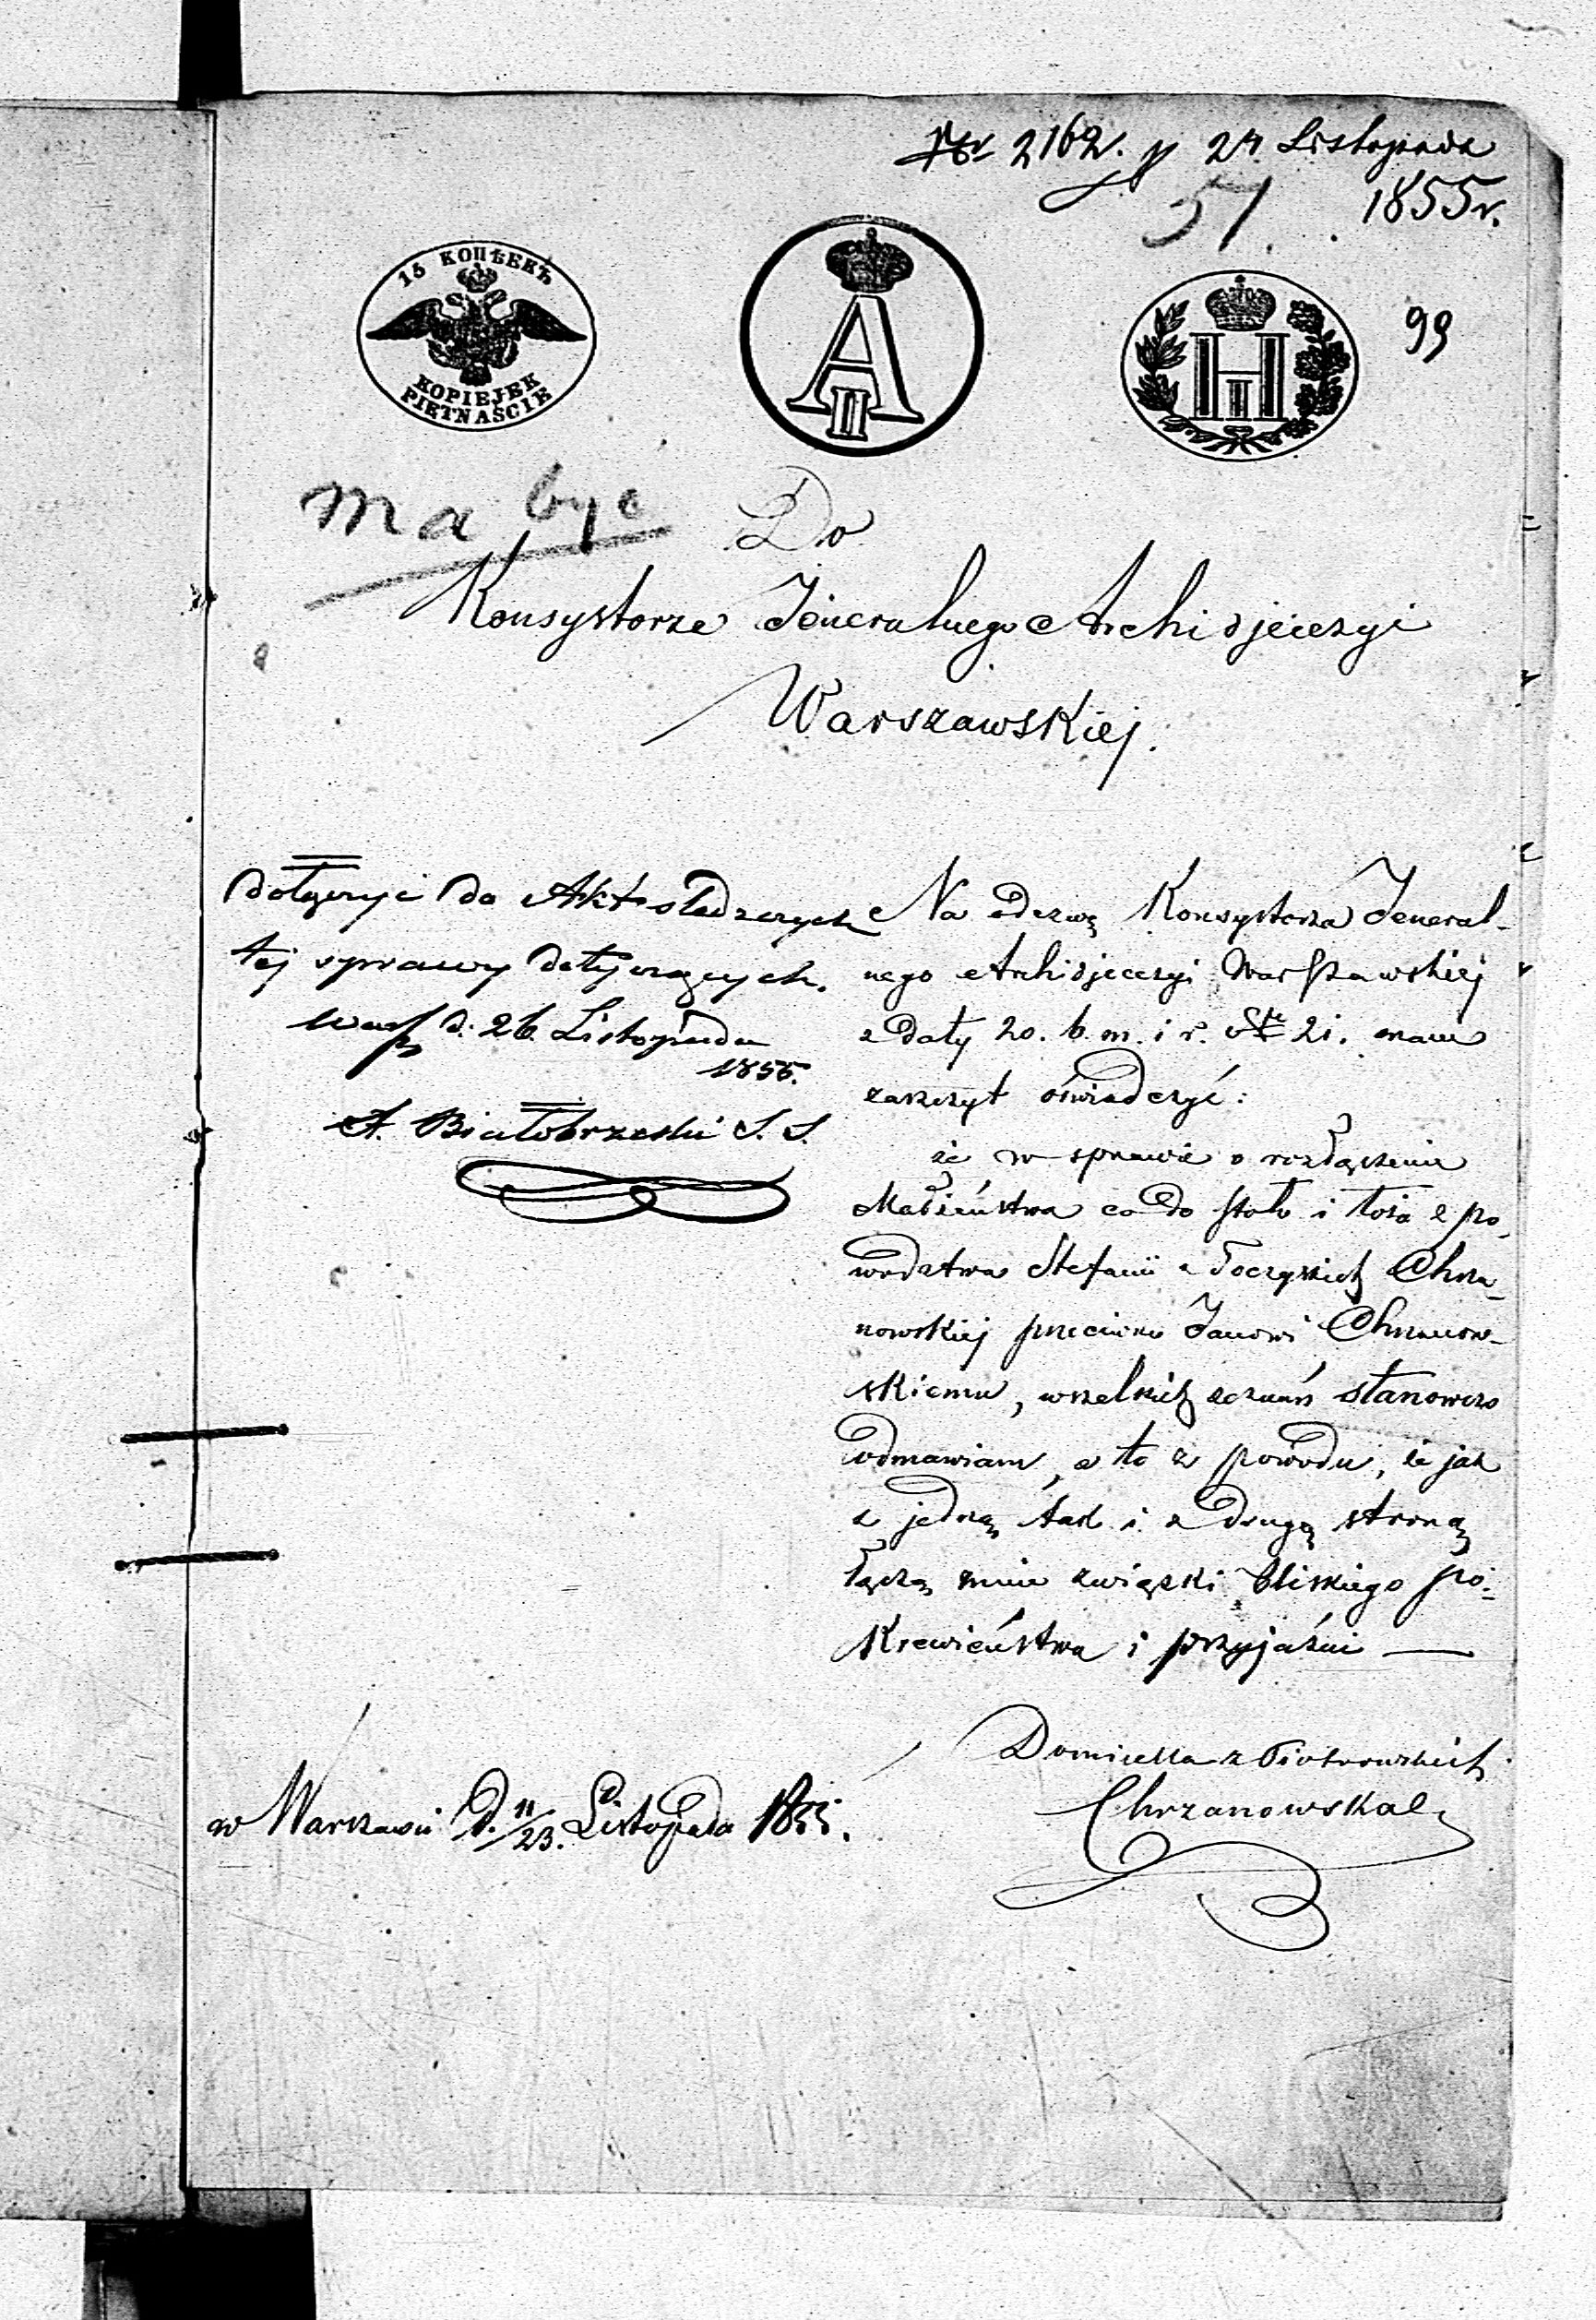 Nr 2162. p 24. Listopada
1855 r.
51.
99
15 КОПѢЕКЪ
KOPIEJEK
PIĘTNAŚCIE
A II
H I
ma byc
Do
Konsystorza Jeneralnego Archidjecezyi
Warszawskiej.
dołączyć do Akt śledczych
tej sprawy dotyczących.
Warsz d. 26. Listopada
1855.
A. Białobrzeski S. S.
Na odezwę Konsystorza Jeneral-
nego Archidjecezyi Warszawskiej
z daty 20. b. m. i r. Nr 21. mam
zaszczyt oświadczyć:
że w sprawie o rozłączenie
Małżeństwa co do stołu i łoża z po-
wództwa Stefanii z Chrza-
nowskiej przeciwko Janowi Chrzanow-
skiemu, wszelkich zeznań stanowczo
odmawiam, a to z powodu, że jak
z jedną tak i z drugą stroną
łączą mnie związki bliskiego po-
krewieństwa i przyjaźni —
Domicella z Piotrowskich
Chrzanowska
w Warszawie d. 11/23. Listopada 1855.